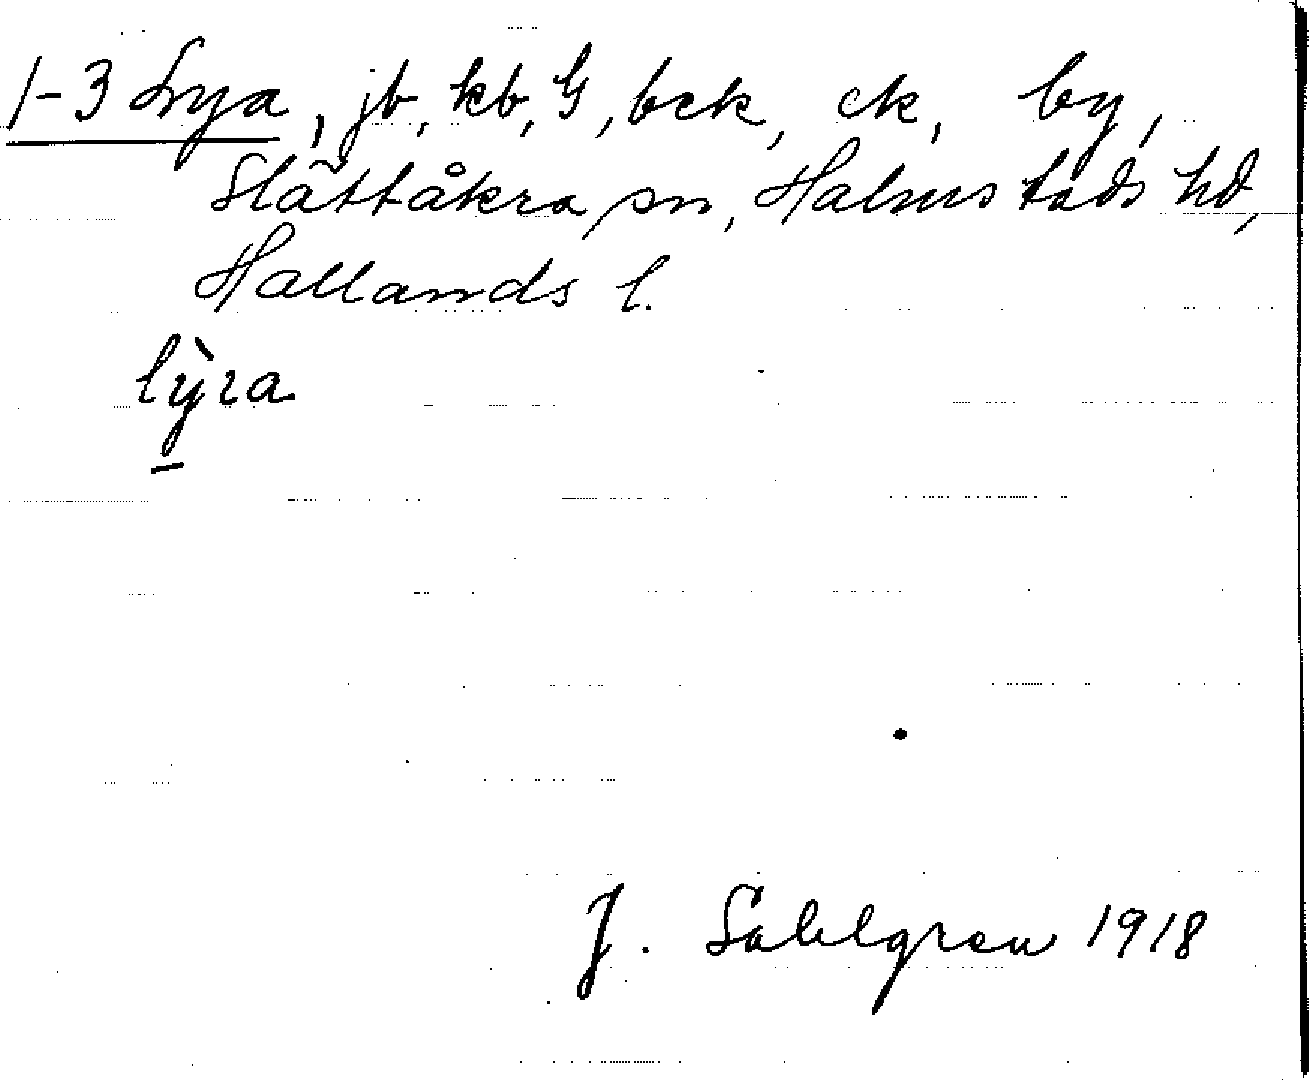 1-3 , jb, kb, G, bek, ek, by,
Slättåkra sn, Halmstads hd,
Hallands l.
lỳra
J. Sahlgren 1918